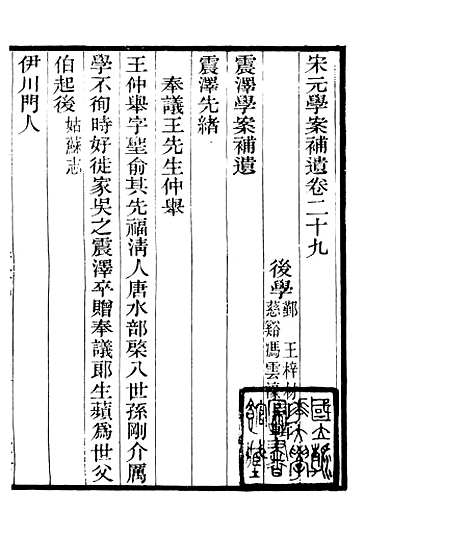 宋元學案補遺卷二十九
後學鄞王梓材
慈谿馮雲濠
震澤學案補遺
震澤先緒
奉議王先生仲舉
王仲舉字聖俞其先福清人唐水部棨八世孫剛介厲
學不徇時好徙家吳之震澤卒贈奉議郎生蘋爲世父
伯起後姑蘇志
伊川門人